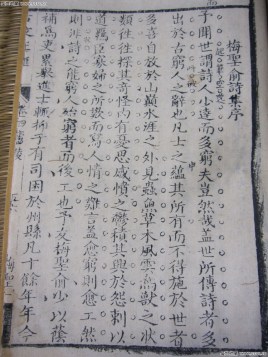 梅聖俞詩集序
予聞世謂詩人少達而多窮夫豈然哉蓋世所傳詩者多
出於古窮人之辭也凡士之蘊其所有而不得施於世者
多喜自放於山巔水涯之外見蟲魚草木風雲鳥獸之狀
類往往探其奇怪內有憂思感憤之鬱積其興於怨刺以
道羈臣寡婦之所歎而寫人情之難言蓋愈窮則愈工然
則非詩之能窮人殆窮者而後工也予友梅聖俞少以蔭
補爲吏累舉進士輒抑於有司困於州縣凡十餘年年今
梅聖